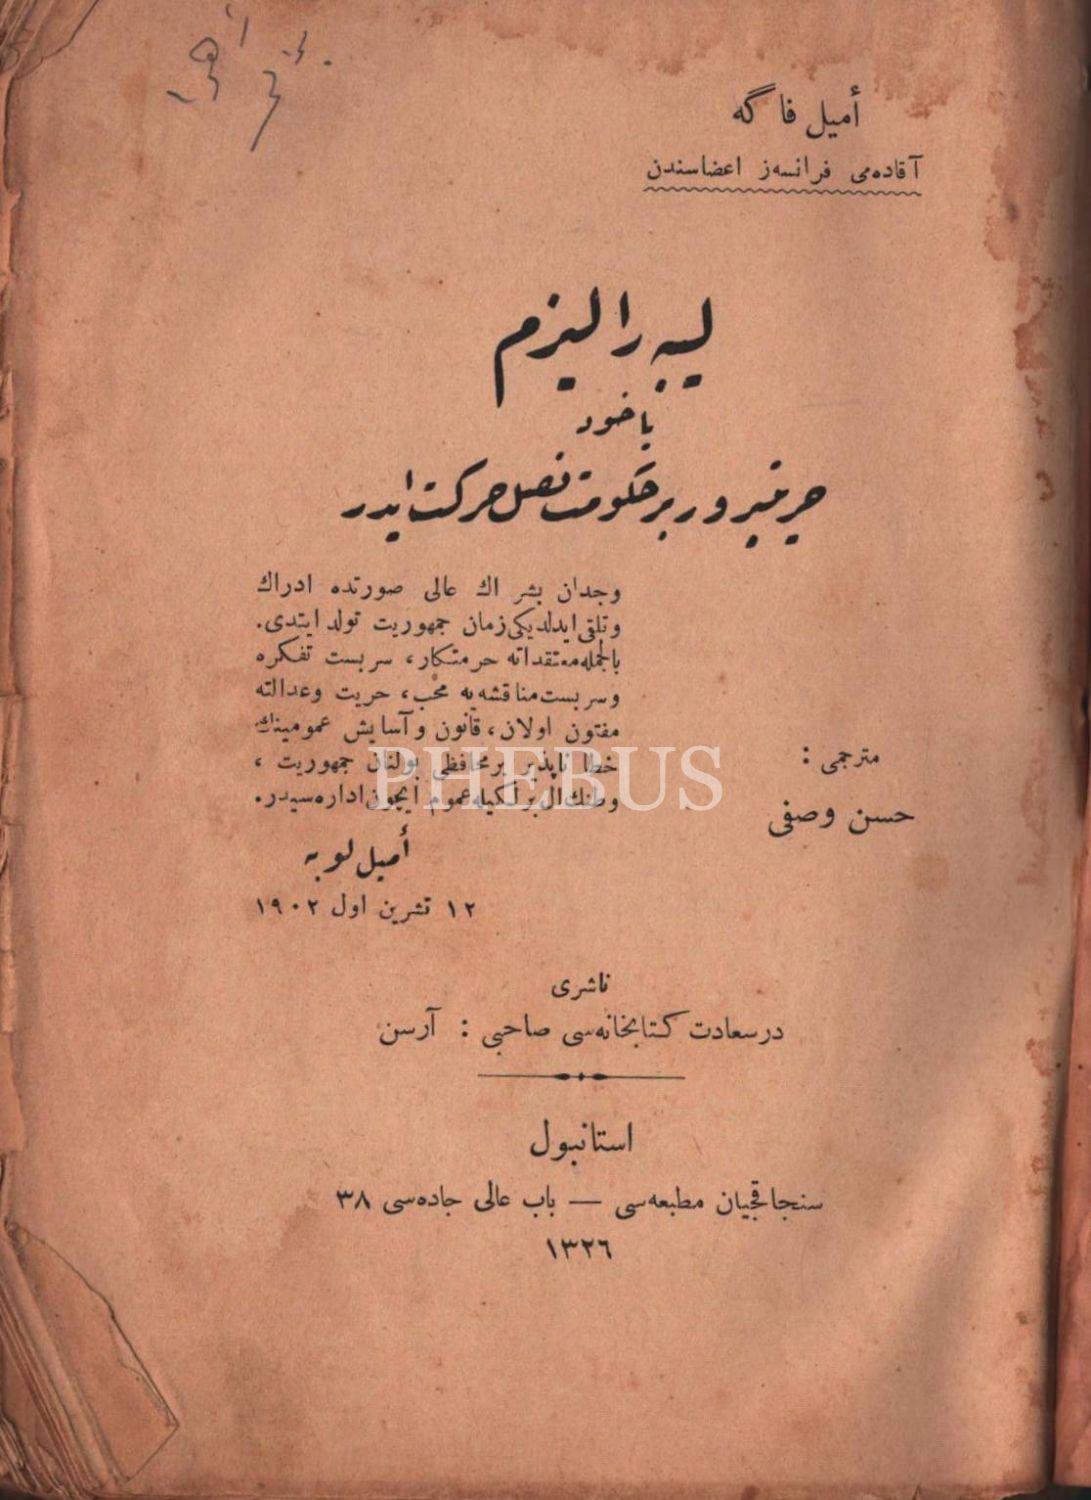 أميل فاگه
آقاده‌مى فرانسه‌ز اعضاسندن
ليبه راليزم
ياخود
حريتپرور بر حكومت نصل حركت ايدر
وجدان بشر اك عالى صورتده ادراك
وتلقى ايدلديكى زمان جمهوريت تولد ايتدى.
بالجمله معتقداته حرمتكار، سربست تفكره
وسربست مناقشه‌يه محب، حريت وعدالته
مفتون اولان، قانون وآسايش عموميتك
خطا ناپذير برمحافظى بولنان جمهوريت،
وطنك ال بر لكيله عموم ايچون اداره‌سيدر.
أميل لوبه
١٢ تشرين اول ١٩٠٢
مترجمى :
حسن وصفى
ناشرى
درسعادت كتابخانه‌سى صاحبى : آرسن
استانبول
سنجاقجيان مطبعه‌سى — باب عالى جاده‌سى ٣٨
١٣٢٦
PHEBUS